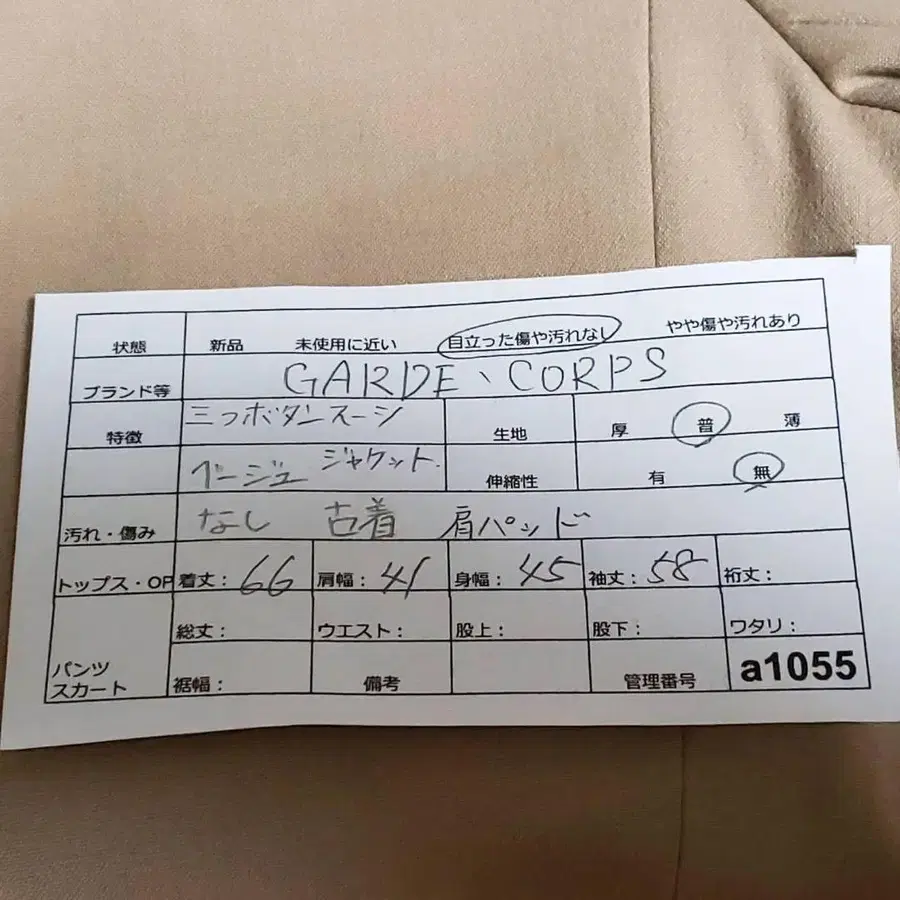 状態 新品 未使用に近い 目立った傷や汚れなし やや傷や汚れあり
ブランド等 GARDE、CORPS
特徴 三つボタンスーツ 生地 厚 普 薄
ベージュ ジャケット. 伸縮性 有 無
汚れ・傷み なし 古着 肩パッド
トップス・OP 着丈: 66 肩幅: 41 身幅: 45 袖丈: 58 裄丈:
総丈: ウエスト: 股上: 股下: ワタリ:
パンツ
スカート 裾幅: 備考 管理番号 a1055